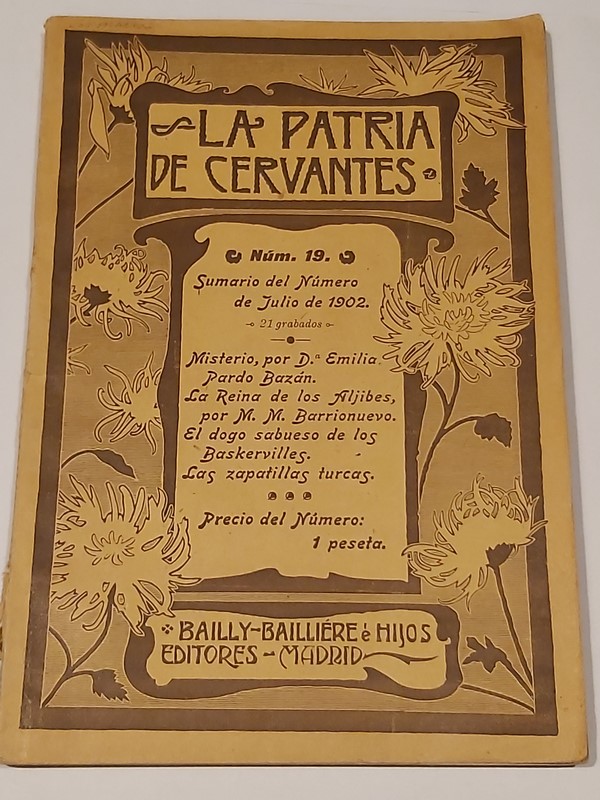 LA PATRIA
DE CERVANTES
Núm. 19.
Sumario del Número
de Julio de 1902.
21 grabados
Misterio, por D.ª Emilia
Pardo Bazán.
La Reina de los Aljibes,
por M. M. Barrionuevo.
El dogo sabueso de los
Baskervilles.
Las zapatillas turcas.
Precio del Número:
1 peseta.
BAILLY-BAILLIÉRE é HIJOS
EDITORES - MADRID